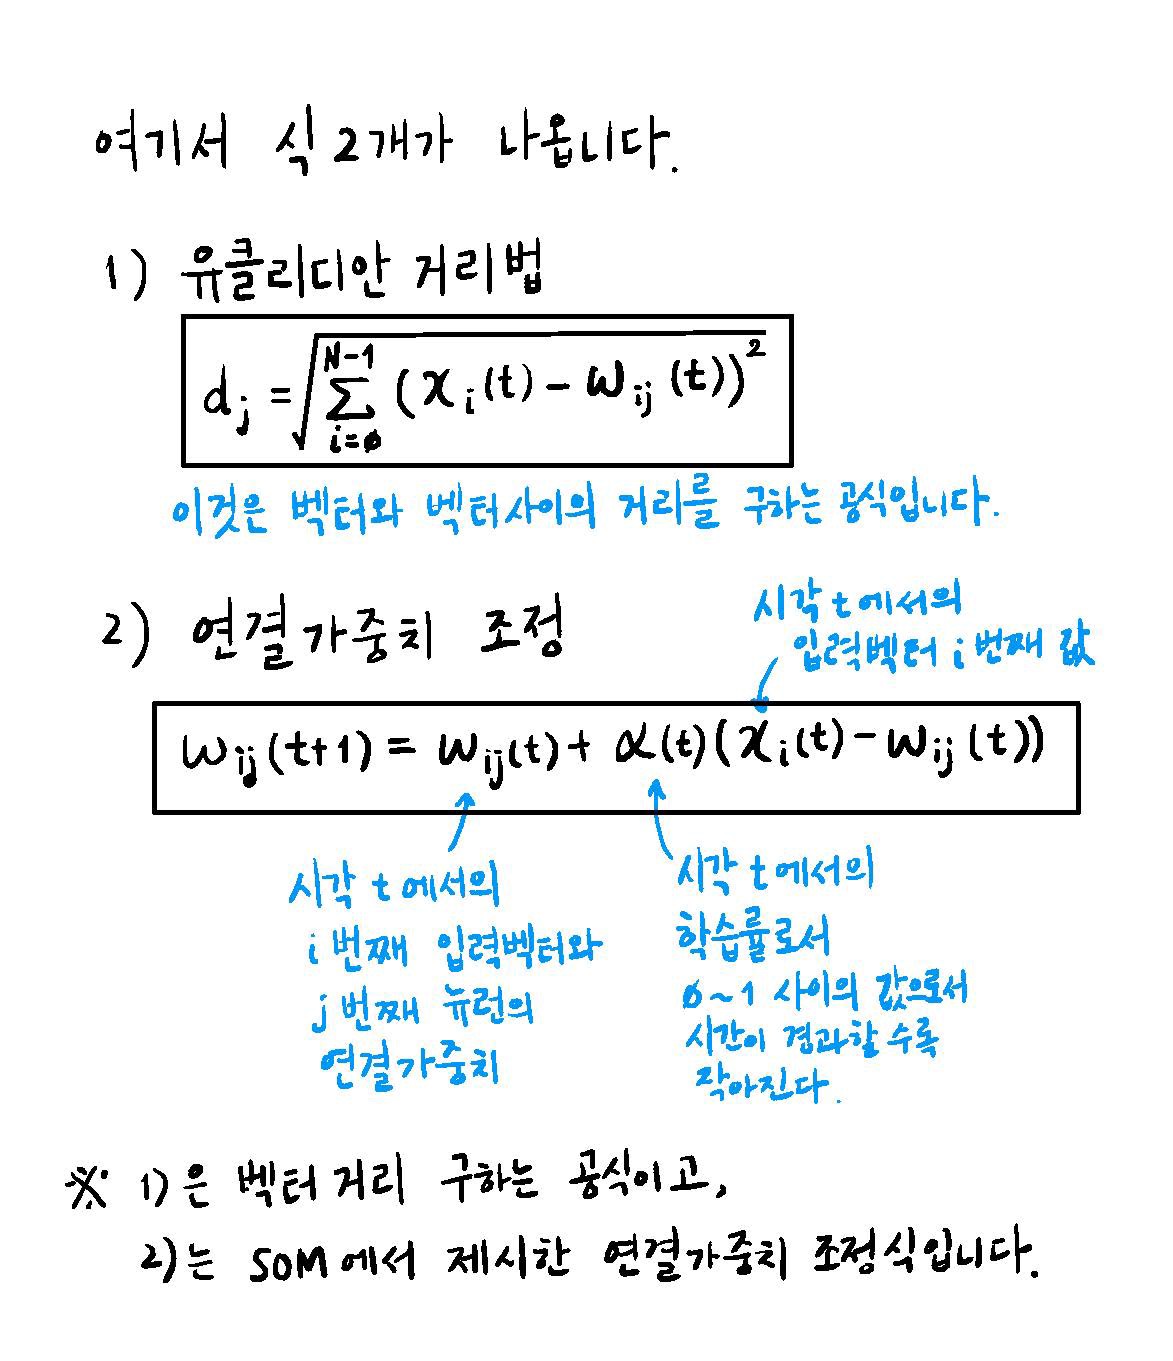 여기서 식 2개가 나옵니다.
1) 유클리디안 거리법
dj = √ N-1 Σ i=0 (xi(t) - wij(t))²
이것은 벡터와 벡터사이의 거리를 구하는 공식입니다.
2) 연결가중치 조정
시각 t에서의
입력벡터 i번째 값
wij(t+1) = wij(t) + α(t)(xi(t) - wij(t))
시각 t에서의
i번째 입력벡터와
j번째 뉴런의
연결가중치
시각 t에서의
학습률로서
0~1 사이의 값으로서
시간이 경과할수록
작아진다.
※ 1)은 벡터거리 구하는 공식이고,
2)는 SOM에서 제시한 연결가중치 조정식입니다.